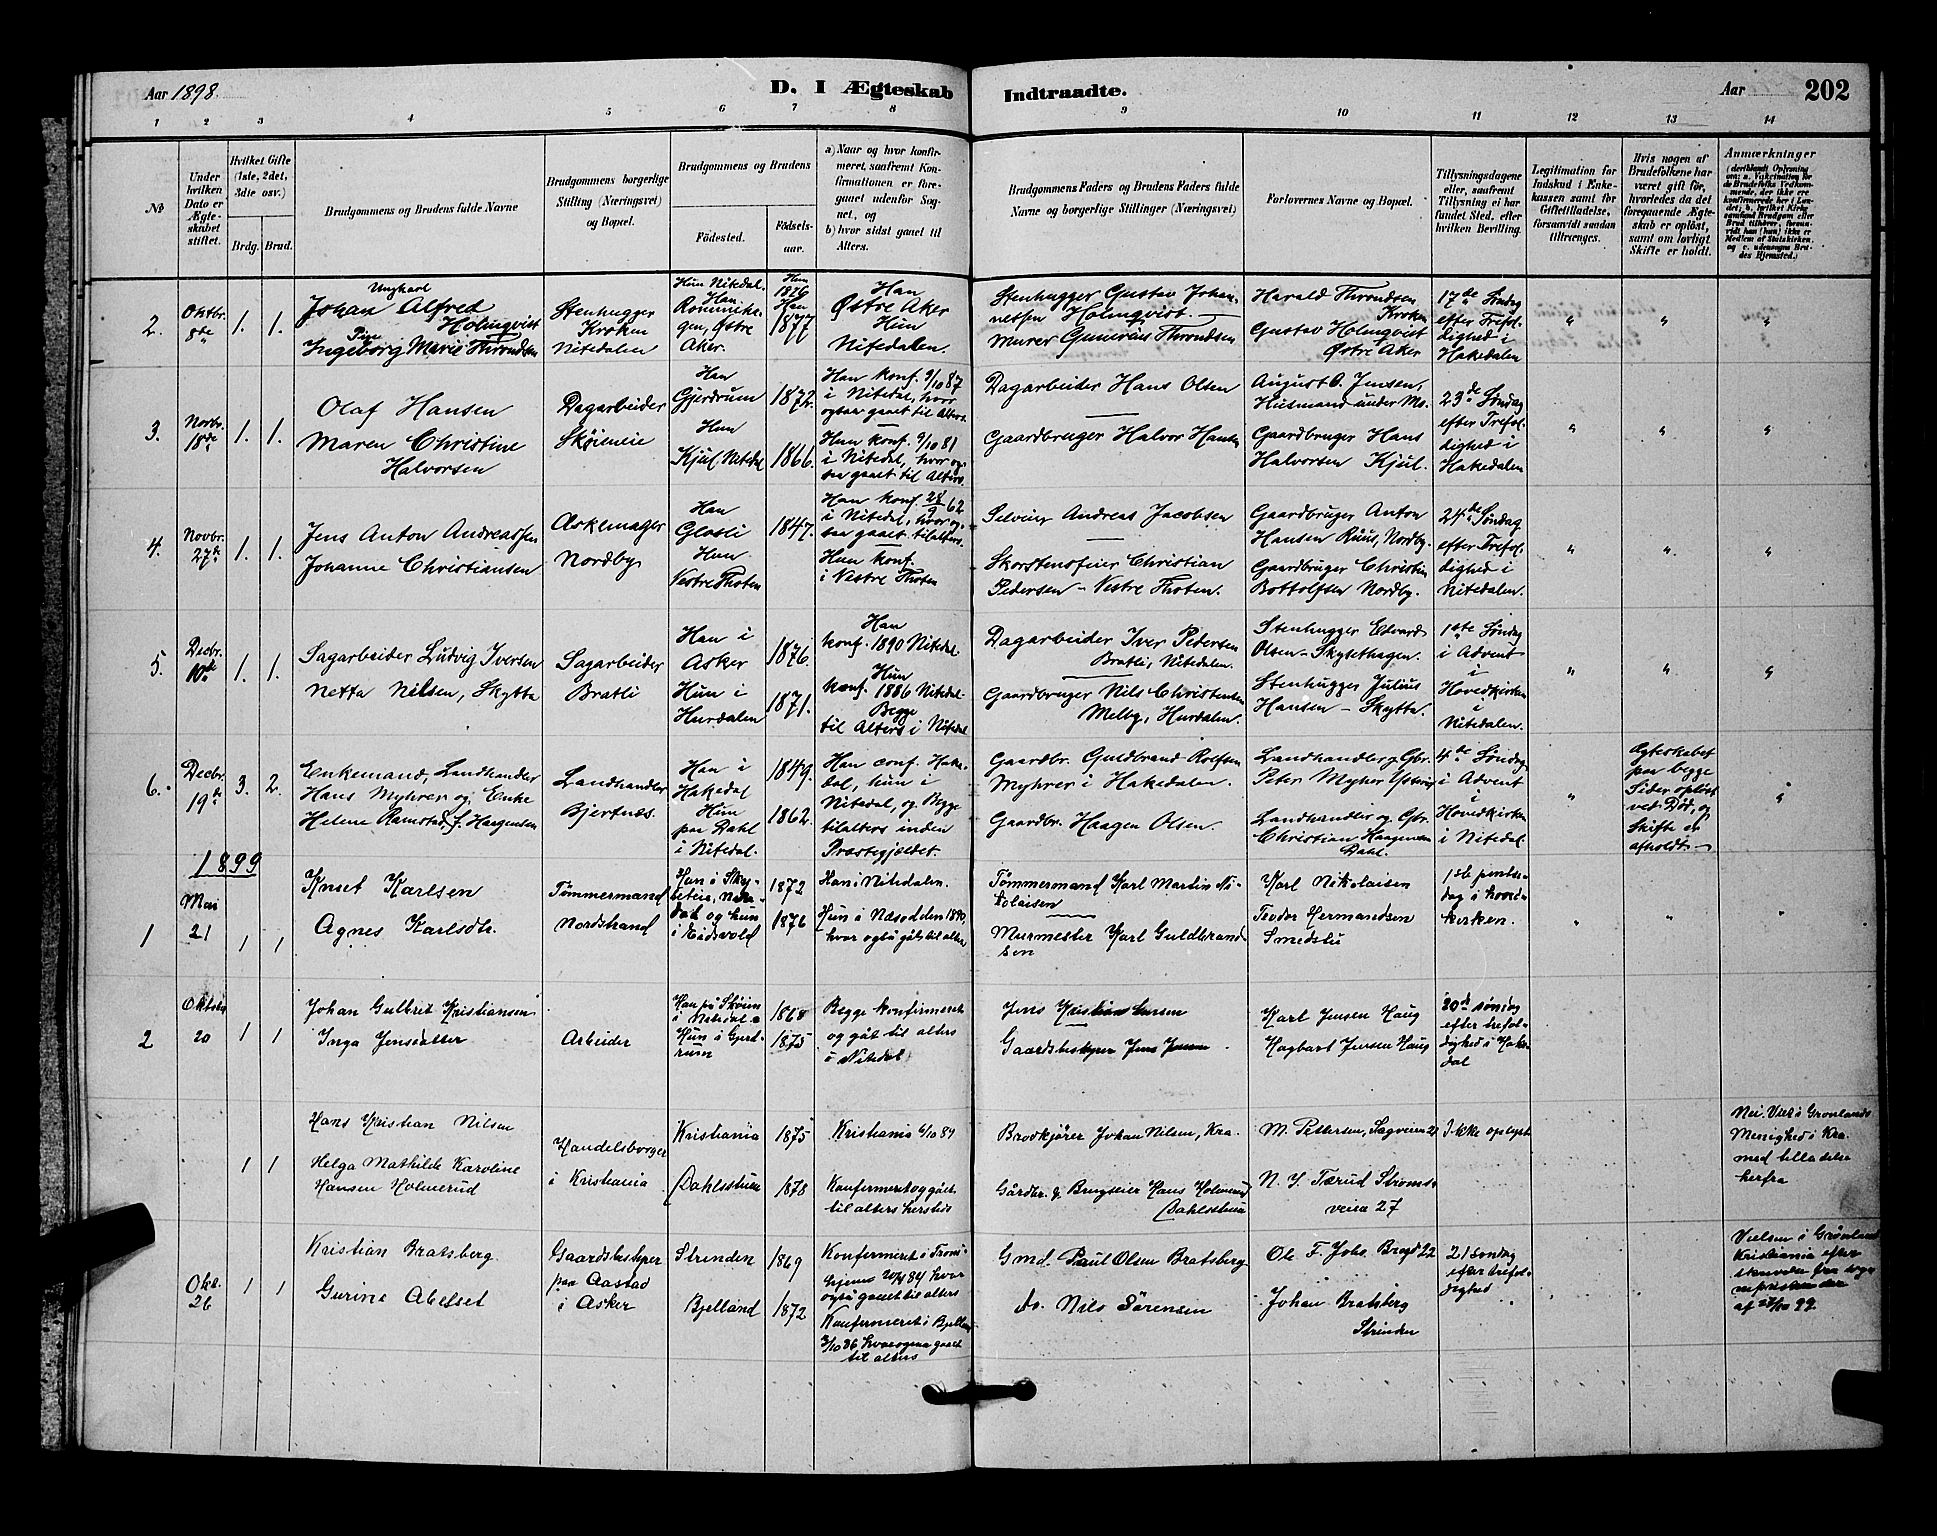 Aar 1898.
D. I Ægteskab Indtraadte.
Aar
202
1 2 3 4 5 6 7 8 9 10 11 12 13 14
№
Under hvilken Dato er Ægteskabet stiftet.
Hvilket Gifte (1ste, 2det, 3die osv.)
Brdg. Brud.
Brudgommens og Brudens fulde Navne
Brudgommens borgerlige Stilling (Næringsvei) og Bopæl.
Brudgommens og Brudens
Fødested.
Fødselsaar.
a) Naar og hvor konfirmeret, saafremt Konfirmationen er foregaaet udenfor Sognet, og
b) hvor sidst gaaet til Alters.
Brudgommens Faders og Brudens Faders fulde Navne og borgerlige Stillinger (Næringsvei)
Forlovernes Navne og Bopæl.
Tillysningsdagene eller, saafremt Tillysning ei har fundet Sted, efter hvilken Bevilling.
Legitimation for Indskud i Enkekassen samt for Giftetilladelse, forsaavidt saadan tiltrænges.
Hvis nogen af Brudefolkene har været gift før, hvorledes da det foregaaende Ægteskab er opløst, samt om lovligt Skifte er holdt.
Anmærkninger
2. Oktbr. 8de 1. 1.
Ungkarl
Johan Alfred
Holmqvist
Pige
Ingeborg Marie Throndsen
Stenhugger
Kroken
Nitedalen
Hun Nitedal.
Han
Østre
Aker.
Hun
1876
Han
1877
Han
Østre Aker
Hun
Nitedalen.
Stenhugger Gustav Johannessen Holmqvist.
Murer Gunerius Throndsen
Harald Throndsen
Kroken
Gustav Holmqvist
Østre Aker
17de Søndag
efter Trefoldighed i
Hakedalen
3. Novbr. 18de 1. 1.
Olaf Hansen
Maren Christine
Halvorsen
Dagarbeider
Skøieneie
Han
Gjerdrum
Hun
Kjul, Nitedal
1872.
1866.
Han konf. 9/10 87
i Nitedal, hvor
ogsaa gaaet til Alters.
Hun konf. 9/10 81
i Nitedal, hvor ogsaa gaaet til Alters.
Dagarbeider Hans Olsen
Gaardbruger Halvor Hansen
August O. Jensen,
Husmand under Mo.
Gaardbruger Hans
Halvorsen Kjul.
23de Søndag
efter Trefoldighed i
Hakedalen
4. Novbr. 27de 1. 1.
Jens Anton Andreassen
Johanne Christiansen
Askemager
Nordby
Han
Glosli
Hun
Vestre Thoten
1847.
Han konf. 28/9 62
i Nitedal, hvor ogsaa gaaet til alters.
Hun konf.
i Vestre Thoten
Selveier Andreas Jacobsen
Skorstensfeier Christian
Pedersen – Vestre Thoten.
Gaardbruger Anton
Hansen Ruus, Nordby.
Gaardbruger Christian
Bottolfsen Nordby.
24de Søndag
efter Trefoldighed i
Nitedalen.
5. Decbr. 10de 1. 1.
Sagarbeider Ludvig Iversen
Netta Nilsen, Skytta
Sagarbeider
Bratli
Han i
Asker
Hun i
Hurdalen
1876.
1871.
Han
konf. 1890 Nitedal.
Hun
konf. 1886 Nitedal
Begge
til Alters i Nitedal
Dagarbeider Iver Pedersen
Bratli, Nitedalen.
Gaardbruger Nils Christensen
Melby, Hurdalen.
Stenhugger Edvard
Olsen – Skysethagen.
Stenhugger Julius
Hansen – Skytta.
1ste Søndag
i Advent
i
Hovedkirken
i
Nitedalen.
6. Decbr. 19de 3. 2.
Enkemand, Landhandler
Hans Myhrer og Enke
Helene Ramstad, f. Haagensen
Landhandler
Bjertnæs.
Han i
Hakedal
Hun
paa Dahl
i Nitedal.
1849.
1862.
Han conf. Hakedal, hun i
Nitedal, og Begge
tilalters inden
Præstegjeldet.
Gaardbr. Guldbrand Rolfsen
Myhrer i Hakedalen.
Gaardbr. Haagen Olsen.
Landhandler og Gbr.
Peter Myhrer
Landhandler og Gbr.
Christian Haagensen
Dahl.
4de Søndag
i Advent
i
Hovedkirken
i Nitedal.
Ægteskabet
paa begge
Sider opløst
ved Død, og
Skifte er
afholdt –
1899
1 Mai 21 1 1
Knut Karlsen
Agnes Karlsdtr.
Tømmermand
Nordstrand
Han i
Nitedal og hun
i Eidsvold
1872
1876
Han i Nitedalen.
Hun i Næsodden 1890,
hvor også gåt til alters
Tømmermand Karl Martin Nikolaisen
Murmester Karl Guldbrandsen
Karl Nikolaisen
Teodor Hermandsen
Smedstu
1ste pintsedag i hovedkirken.
2 Oktober 20 1 1
Johan Gulbrand Kristiansen
Inga Jensdatter
Arbeider
Han på Skøien
i Nitedal
Hun i Gjerdrum
1868
1875
Begge konfirmeret
og gåt til alters
i Nitedal
Jens Kristiansen
Gaardbestyrer Jens Jensen
Karl Jensen Haug
Hagbart Jensen Haug
20de søndag
efter trefoldighed i Hakedal
1 1
Hans Kristian Nilsen
Helga Mathilde Karoline
Hansen Holmerud
Handelsborger
i Kristiania
Kristiania
Dahlsstuen
1875
1878
Kristiania
Konfermeret og gået
til alters hersteds
Brovkjører Johan Nilsen, Kra.
Gårdbr. & Brugseier Hans Holmerud
Dahlsstuen
M. Pettersen, Sagveien 21
N. J. Tærud Strømsveien 27
Ikke oplyst
Nei. Viet i Grønlands
Menighed i Kra.
med tilladelse
herfra
Okt. 26 1 1
Kristian Bratsberg
Gurine Abelset
Gaardsbestyrer
paa Aastad
i Asker
Strinden
Bjelland
1869
1872
Konfermeret i
hvor
også gaaet til alters
Konfermeret i Bjelland
3/10 86 hvor ogsaa gaaet
til alters
Gmd. Paul Olsen Bratsberg
do. Nils Sørensen
Ole F. Johs. 22
Johan Bratsberg
Strinden
21 søndag
efter trefoldighed
Vielsen i Grønland
Kristiania efter